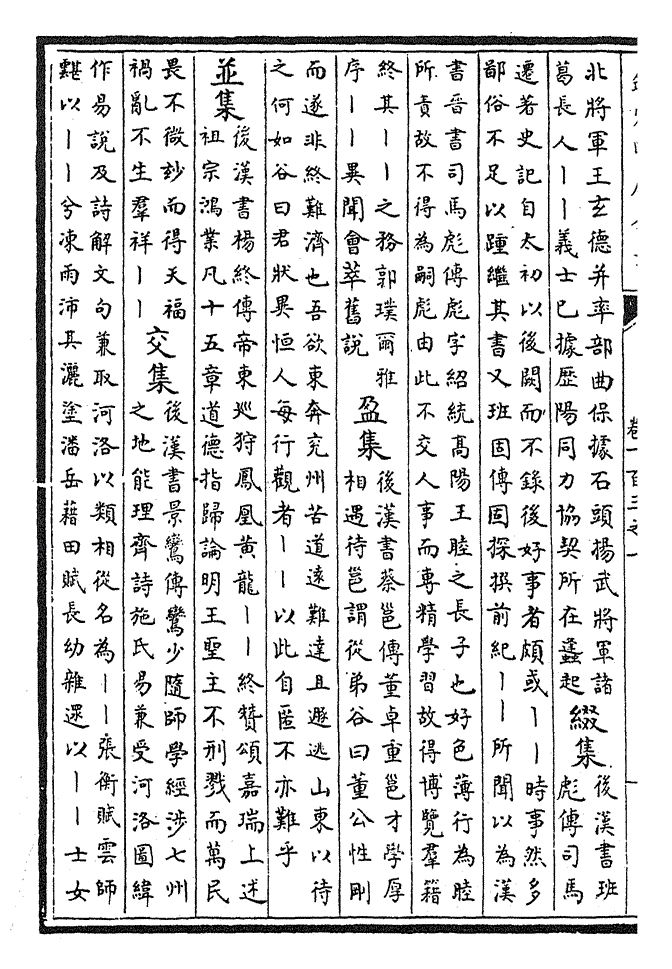 卷一百三之一
北將軍王玄德并率部曲保據石頭揚武將軍諸
葛長人｜｜義士已據歷陽同力協契所在蠭起
綴集
後漢書班
彪傳司馬
遷著史記自太初以後闕而不錄後好事者頗或｜｜時事然多
鄙俗不足以踵繼其書又班固傳固探撰前紀｜｜所聞以為漢
書晉書司馬彪傳彪字紹統高陽王睦之長子也好色薄行為睦
所責故不得為嗣彪由此不交人事而專精學習故得博覽羣籍
終其｜｜之務郭璞爾雅
序｜｜異聞會萃舊說
盈集
後漢書蔡邕傳董卓重邕才學厚
相遇待邕謂從弟谷曰董公性剛
而遂非終難濟也吾欲東奔兗州苦道遠難達且遯逃山東以待
之何如谷曰君狀異恒人每行觀者｜｜以此自匿不亦難乎
並集
後漢書楊終傳帝東巡狩鳳凰黄龍｜｜終贊頌嘉瑞上述
祖宗鴻業凡十五章道德指歸論明王聖主不刑戮而萬民
畏不微玅而得天福
禍亂不生羣祥｜｜
交集
後漢書景鸞傳鸞少隨師學經涉七州
之地能理齊詩施氏易兼受河洛圖緯
作易說及詩解文句兼取河洛以類相從名為｜｜張衡賦雲師
䨴以｜｜兮涷雨沛其灑塗潘岳藉田賦長幼雜遝以｜｜士女